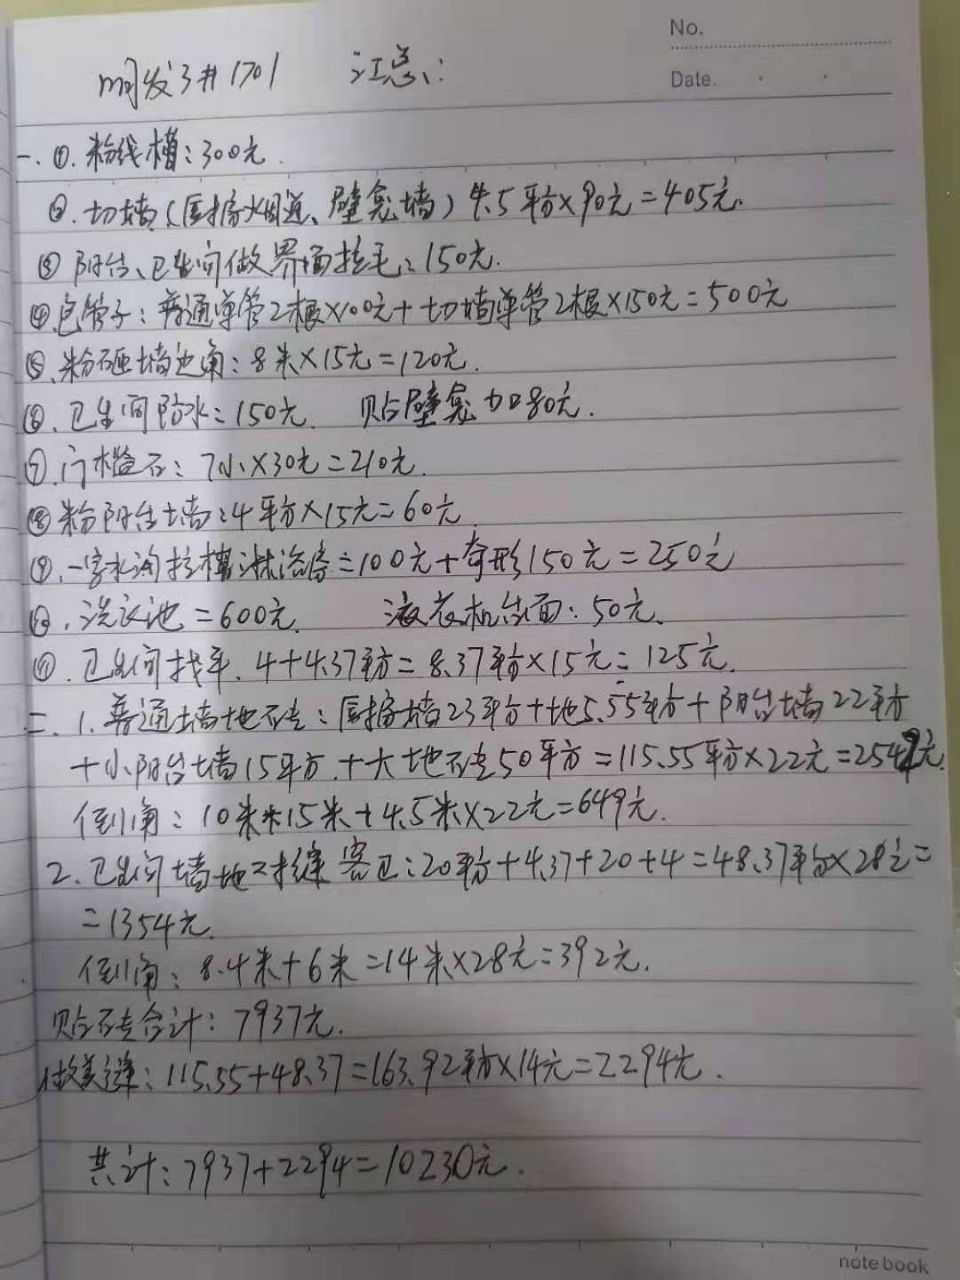 No.
Date.
明发3#1701 江总:
一.①.粉线槽:300元.
②.切墙(厨房烟道、壁龛墙)4.5平方×90元=405元.
③阳台、卫生间做界面拉毛:150元.
④包管子:普通单管2根×100元+切墙单管2根×150元=500元
⑤.粉砸墙边角:8米×15元=120元.
⑥.卫生间防水:150元. 贴壁龛加80元.
⑦.门槛石:7小×30元=210元.
⑧粉阳台墙:4平方×15元=60元.
⑨.一字水沟拉槽淋浴房=100元+奇形150元=250元
⑩.洗衣池=600元. 洗衣机台面:50元.
⑪.卫生间找平.4+4.37平方=8.37平方×15元=125元.
二.1.普通墙地砖:厨房墙23平方+地5.55平方+阳台墙22平方
+小阳台墙15平方.+大地砖50平方=115.55平方×22元=2542元.
倒角:10米+15米+4.5米×22元=649元.
2.卫生间墙地对缝 客卫:20平方+4.37+20+4=48.37平方×28元=
=1354元.
倒角:8.4米+6米=14米×28元=392元.
贴砖合计:7937元.
做美缝:115.55+48.37=163.92平方×14元=2294元.
共计:7937+2294=10230元.
notebook